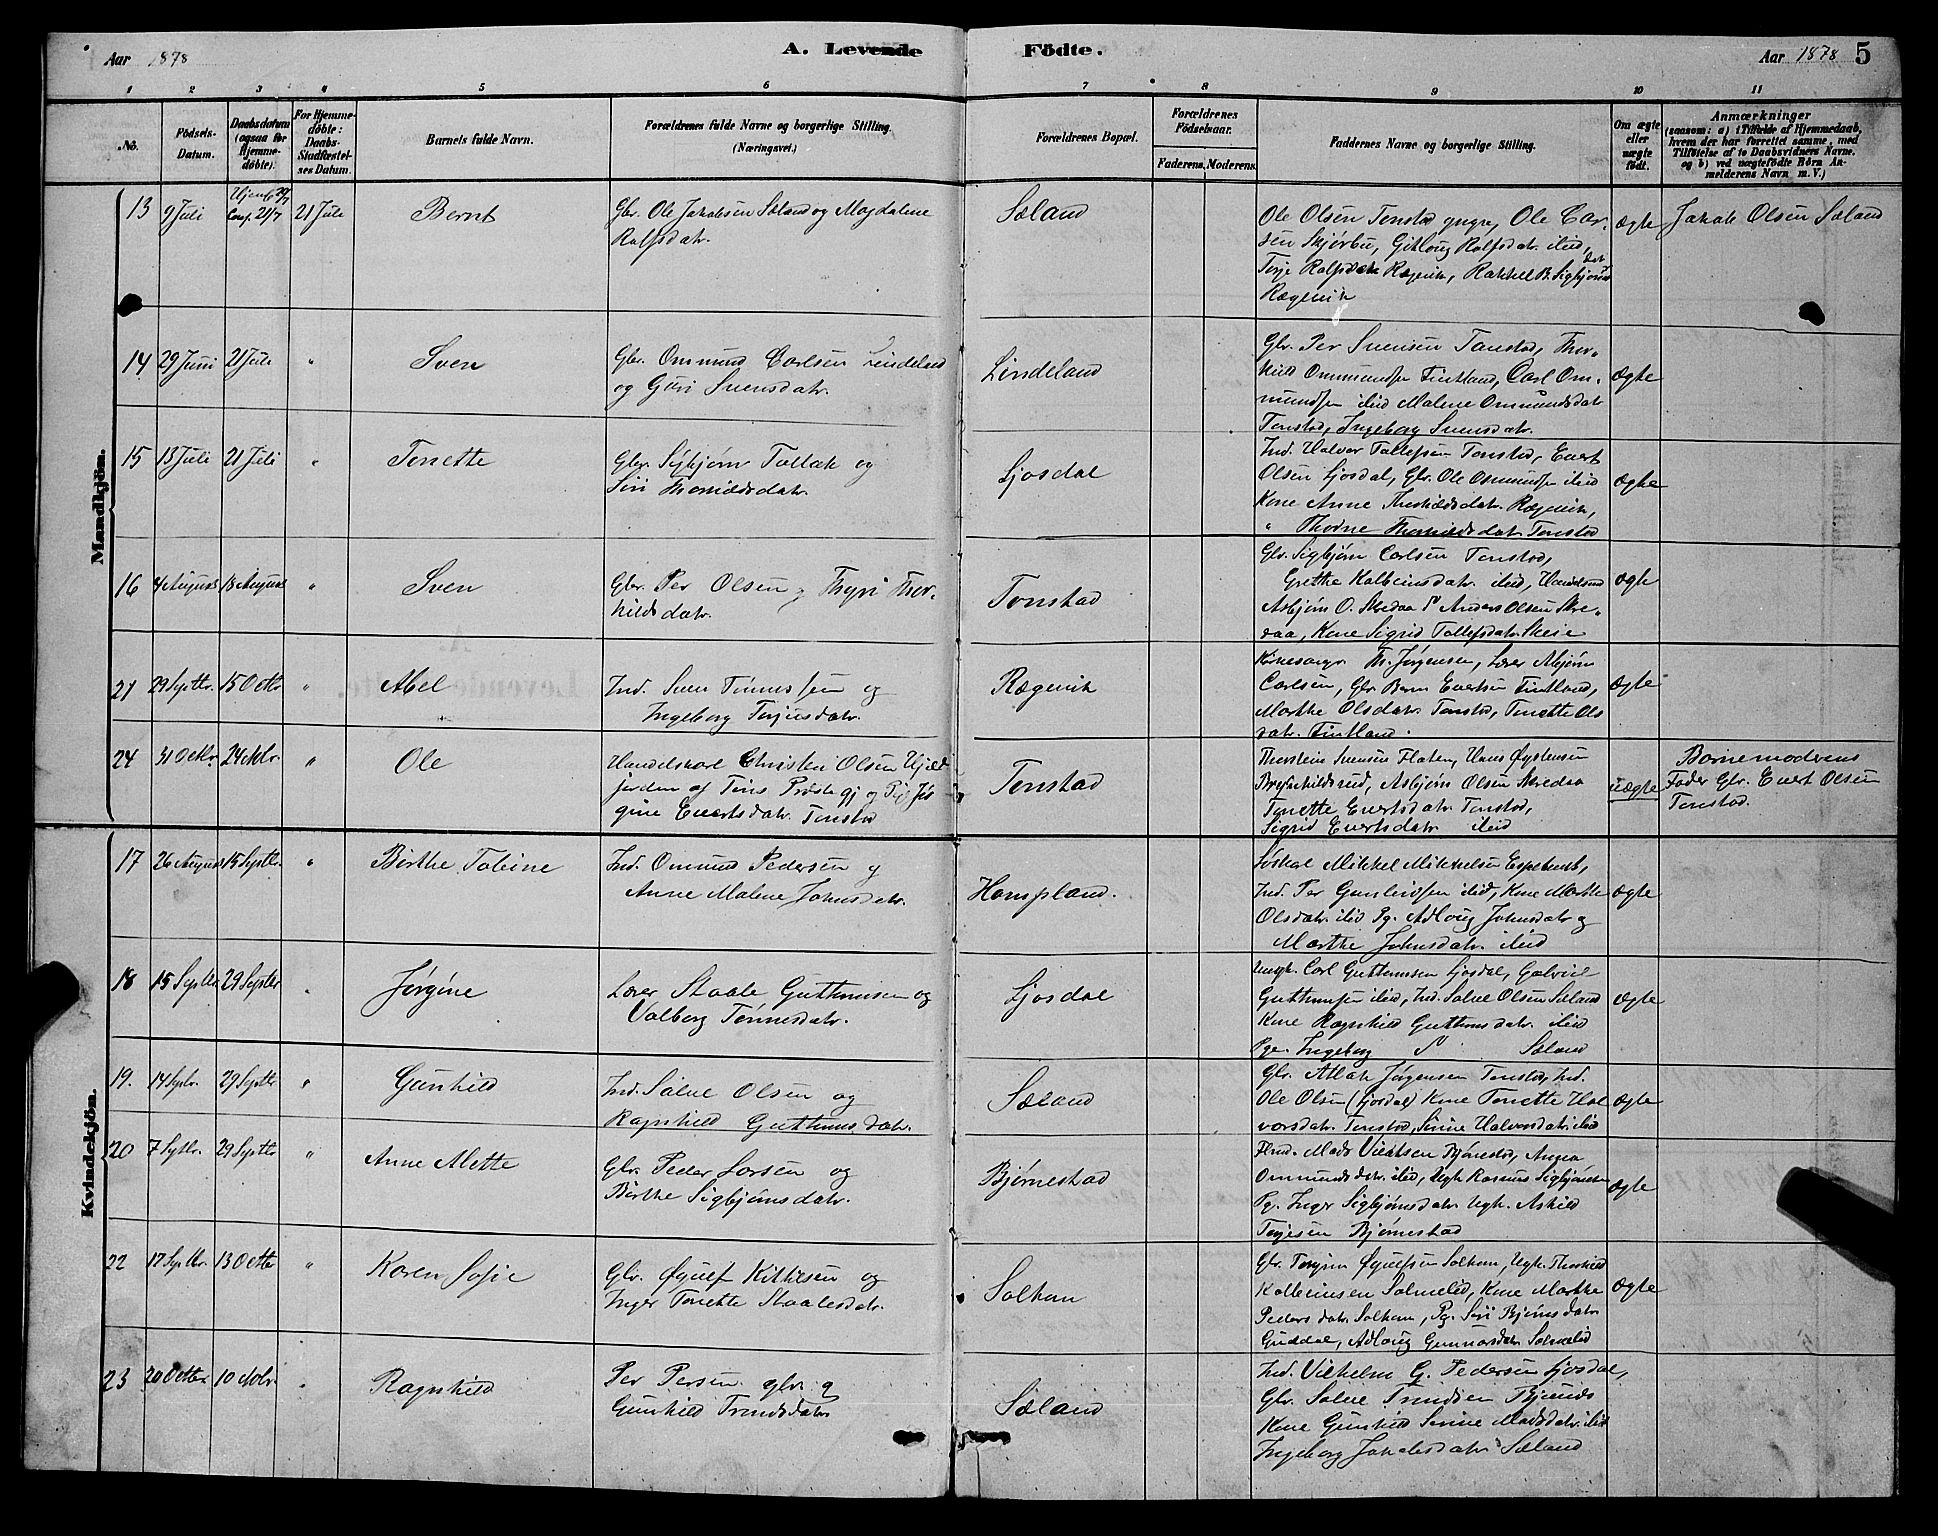 Aar 1878
A. Levende Fødte.
Aar 1878 5
1 2 3 4 5 6 7 8 9 10 11
No.
Fødsels-
Datum.
Daabsdatum
(ogsaa for
Hjemme-
døbte).
For Hjemme-
døbte:
Daabs-
Stadfæstel-
ses Datum.
Barnets fulde Navn.
Forældrenes fulde Navne og borgerlige Stilling.
(Næringsvei.)
Forældrenes Bopæl.
Forældrenes
Fødselsaar.
Faderens. Moderens.
Faddernes Navne og borgerlige Stilling.
Om ægte
eller
uægte
født.
Anmærkninger
(saasom: a) i Tilfælde af Hjemmedaab,
hvem der har forrettet samme, med
Tilføielse af to Daabsvidners Navne,
og b) ved uægtefødte Børn An-
melderens Navn m. V.)
Mandkjön.
13 9 Juli
Conf. 21/7
21 Juli
Bernt
Gbr. Ole Jakobsen Sæland og Magdalene
Rolfsdatr.
Sæland
Ole Olsen Tonstad yngre, Ole Car-
sen Skjørbu, Gitlaug Rolfsdatr ibid,
Terje Rolfsen Rægevik, Rakkel B. Sigbjørns
datr
Rægevik
ægte
Jakob Olsen Sæland
14 29 Juni 21 Juli "
Sven
Gbr. Ommund Carlsen Lindeland
og Guri Svensdatr.
Lindeland
Gbr. Per Svensen Tonstad, Thor-
kild Ommundsen Fintland, Carl Om-
mundsen ibid Malene Ommundsdatr
Tonstad, Ingeborg Svensdatr.
ægte
15 13 Juli 21 Juli "
Tonette
Gbr. Sigbjørn Tollak og
Siri Thorkildsdatr.
Ljosdal
Ind. Halvor Tollefsen Tonstad, Evert
Olsen Ljosdal, Gbr. Ole Ommundsen ibid
Kone Anne Thorkildsdatr. Rægevik,
" Thorine Thorkildsdatr. Tonstad
ægte
16 4 August 18 August "
Sven
Gbr. Per Olsen og Thyri Thor-
kildsdatr.
Tonstad
Gbr. Sigbjørn Carlsen Tonstad,
Grethe Kolbeinsdatr. ibid, Handelsmd
Asbjørn O. Skredaa P. Anders Olsen Skre-
daa, Kone Sigrid Tollefsdatr. Skeie
ægte
21 29 Septbr. 15 Octbr "
Abel
Ind. Sven Tønnessen og
Ingeborg Terjesdatr.
Rægevik
Kirkesanger Th. Jørgensen, Lærer Asbjørn
Carlsen, Gbr. Bern Evertsen Fintland,
Marthe Olsdatr. Tonstad, Tonette Ols
datr. Fintland.
ægte
24 31 Octbr. 24 Nobr. "
Ole
Handelskarl Christen Olsen Hjeld
jorden af Tins Præstegj og Pige Jør
gine Evertsdatr. Tonstad
Tonstad
Thorstein Svensen Flaten, Hans Øystensen
Asbjørn Olsen Skredaa
Tonette Evertsdatr. Tonstad,
Sigrid Evertsdatr ibid
uægte
Barnemoderens
Fader Gbr. Evert Olsen
Tonstad.
Kvindekjön.
17 26 August 15 Septbr. "
Birthe Tobine
Ind. Omund Pedersen og
Anne Malene Johnsdatr.
Hompland.
Løskar Mikkel Mikkelsen Espetveit,
Ind. Per Gunleivsen ibid, Kone Marthe
Olsdatr. ibid Pg. Adlaug Johnsdatr og
Marthe Johnsdatr. ibid
ægte
18 15 Septbr 29 Septbr "
Jørgine
Lærer Staale Guttormsen og
Valborg Tønnesdatr.
Ljosdal
Ungk. Carl Guttormsen Ljosdal, Gabriel
Guttormsen ibid, Ind. Salve Olsen Sæland
Kone Ragnhild Guttormsdatr. ibid
Pge. Ingeborg Sæland
ægte
19. 14 Septbr. 29 Septbr "
Gunhild
Ind. Salve Olsen og
Ragnhild Guttormsdatr.
Sæland
Gbr. Atlak Jørgensen Tonstad, Ind.
Ole Olsen (Ljosdal) Kone Tonette Hal
vorsdatr. Tonstad, Serine Halvorsdatr. ibid
ægte
20 7 Septbr. 29 Septbr "
Anne Mette
Gbr. Peder Larsen og
Birthe Sigbjørnsdatr.
Bjørnestad
Mads Bjønestad, Anna
Ommundsdatr. ibid, Ugk. Rasmus Sigbjørnsen
Pg. Inger Sigbjørnsdatr. Ugk. Askild
Terjesen Bjørnestad
ægte
22 17 Septbr. 13 Octbr "
Karen Sofie
Gbr. Øyulf Kittelsen og
Inger Tonette Staalesdatr.
Solhom
Gbr. Torgrim Øyulfsen Solhom, Ugk. Thorkild
Kolbeinsen Salmelid, Kone Marthe
Pedersdatr. Solhom, Pg. Siri Bjørnsdatr
Guddal, Adlaug Gunnarsdatr. Salmelid
ægte
23 20 Octbr. 10 Nobr. "
Ragnhild
Per Persen gbr. og
Gunhild Trondsdatr
Sæland
Ind. Vilhelm G. Pedersen Ljosdal,
Gbr. Salve Trondsen
Kone Gunhild Serine Madsdatr. ibid
Ingeborg Jakobsdatr Sæland